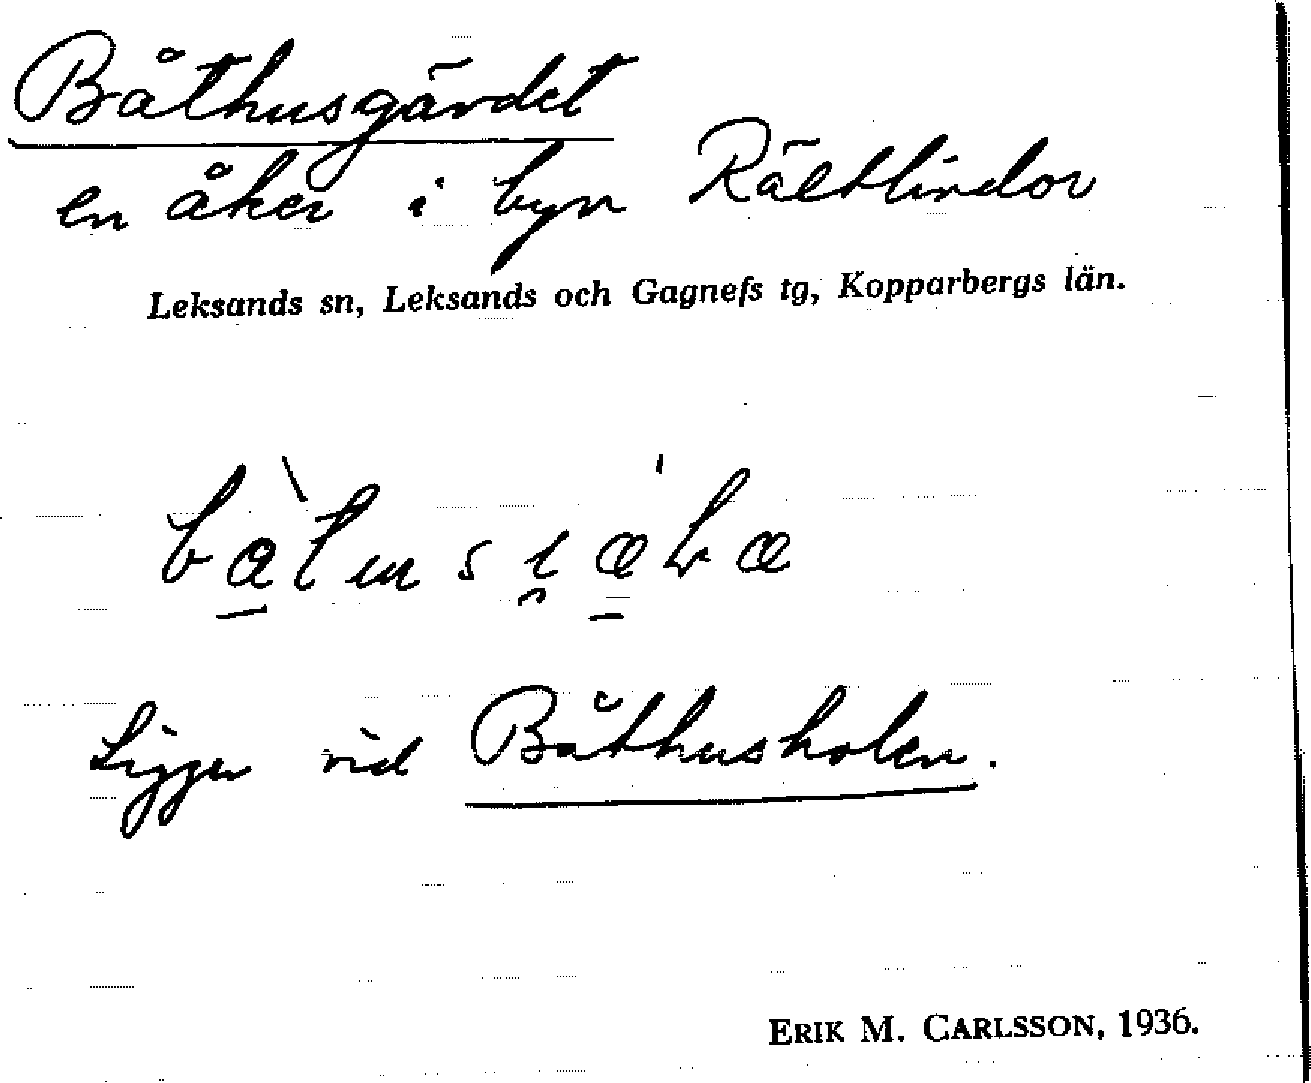 Båthusgärdet
en åker i byn Rältlindor
Leksands sn, Leksands och Gagnefs tg, Kopparbergs län.
Ligger vid Båthusholen.
ERIK M. CARLSSON, 1936.